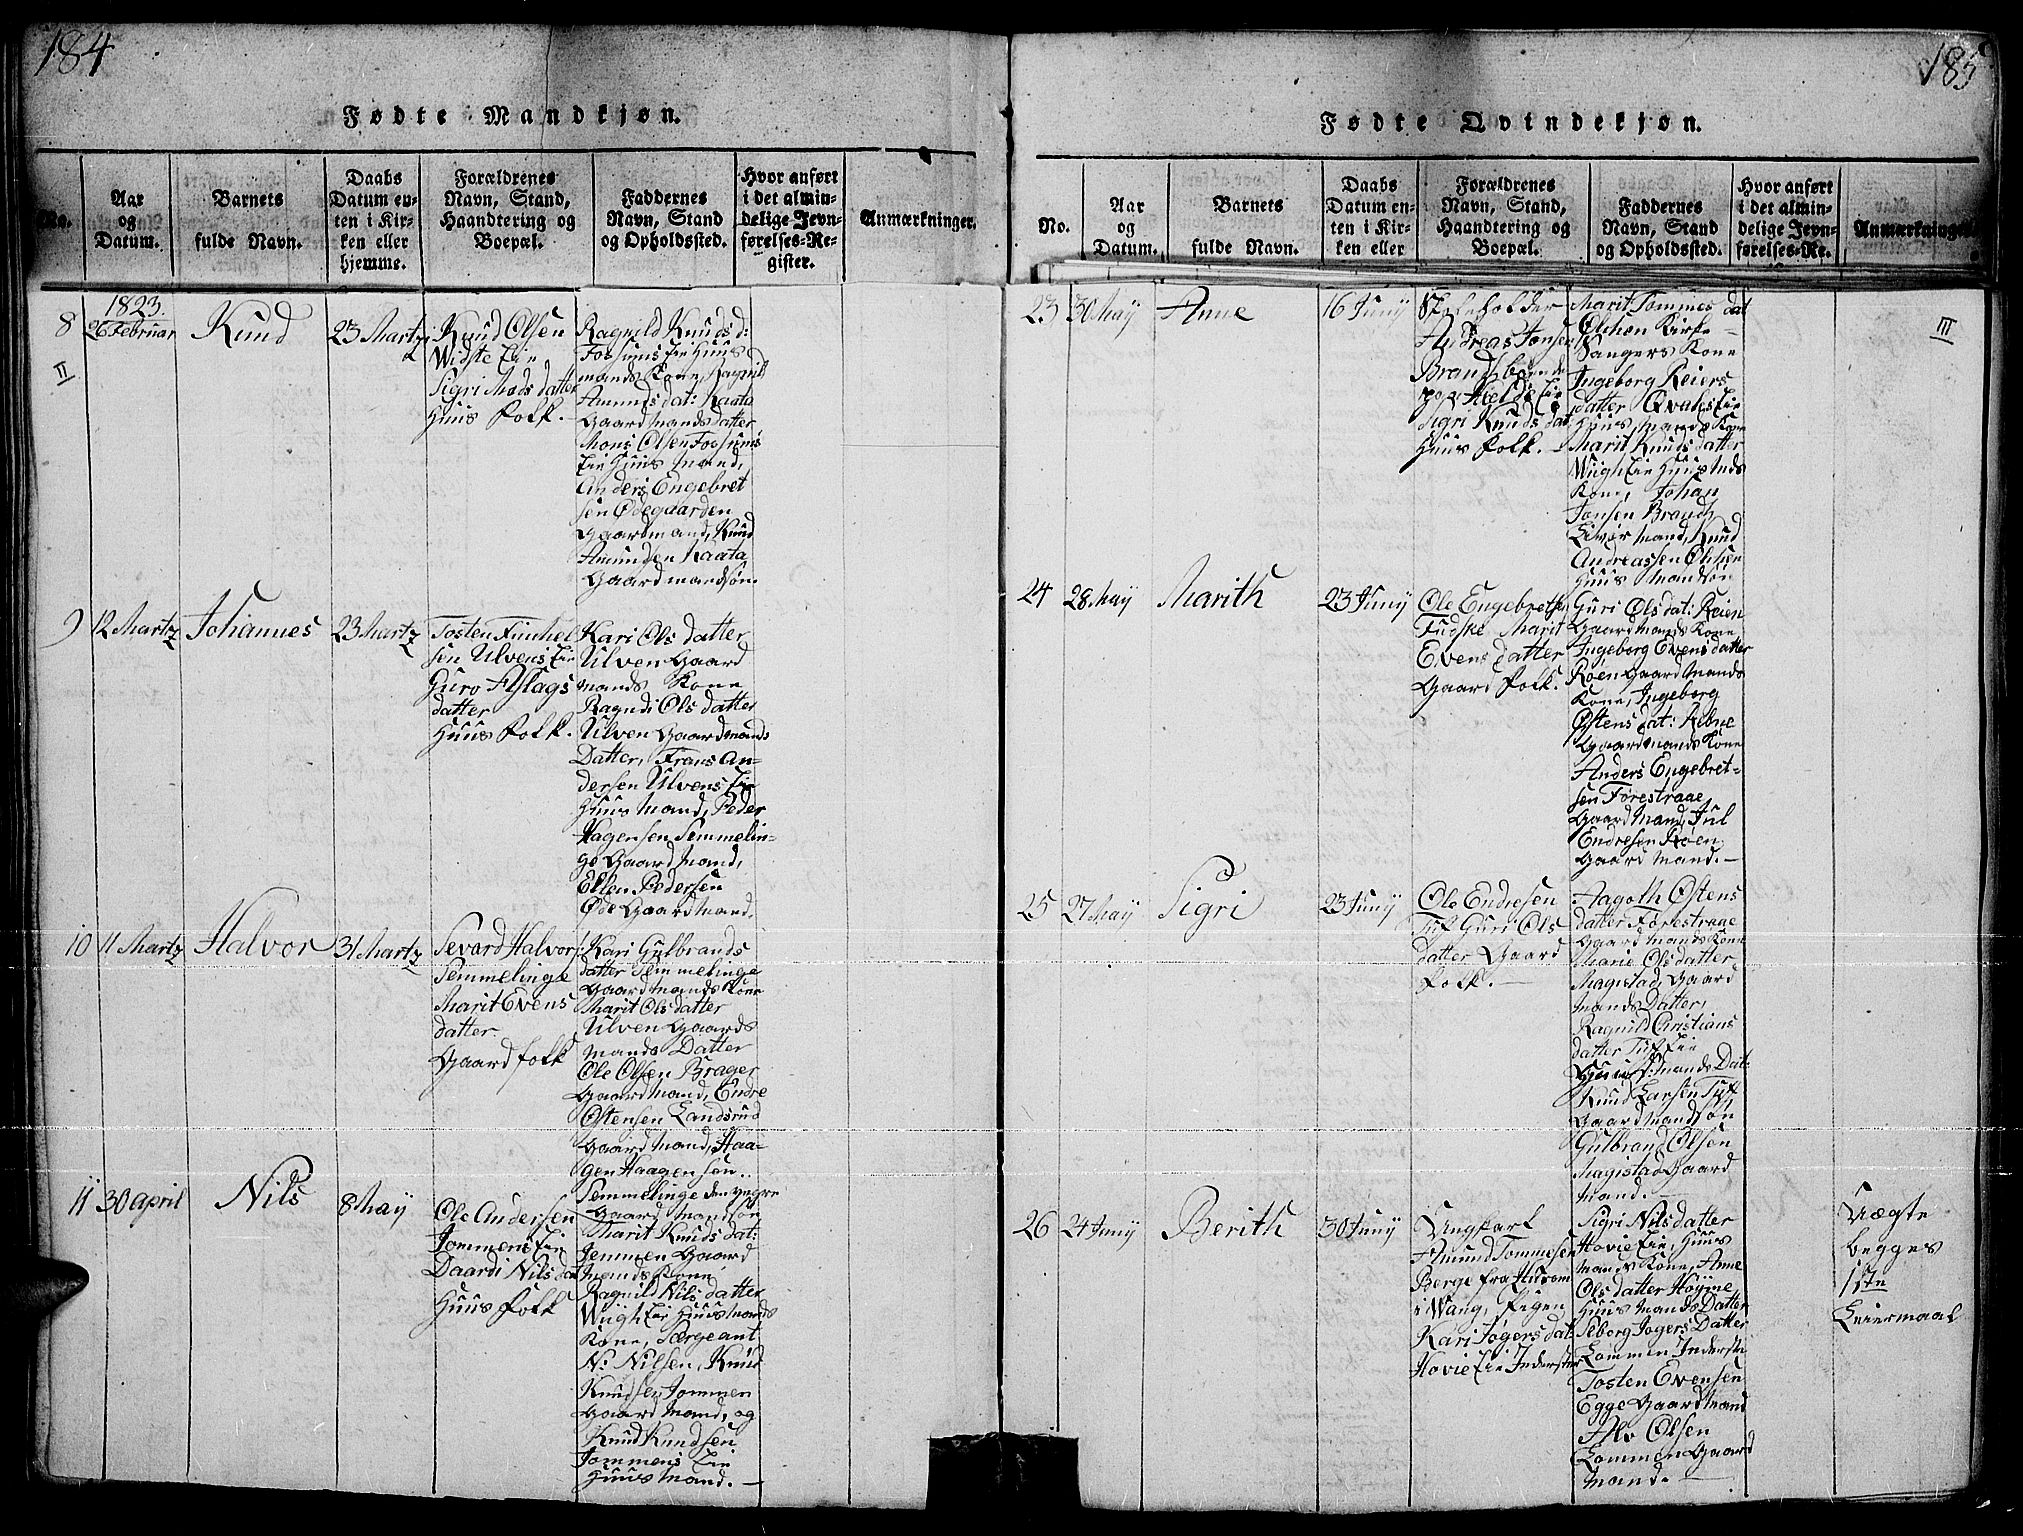 184
Fødte Mandkjøn.
No.
Aar
og
Datum.
Barnets
fulde Navn.
Daabs
Datum en-
ten i Kir-
ken eller
hjemme.
Forældrenes
Navn, Stand,
Haandtering og
Boepæl.
Faddernes
Navn, Stand
og Opholdssted.
Hvor anført
i det almin-
delige Jevn-
førelses-Re-
gister.
Anmærkninger.
8
II
1823.
26 Februar
Knud
23 Martz
Knud Olsen
Widste Eie
Sigri Mads datter
Huus Folk.
Ragnild Knuds d:
Fossums Eie Huus
mands Kone, Ragnild
Amunds dat: Kaata
Gaardmands datter
Mons Olsen Fossums
Eie Huus mand,
Anders Engebret
sen Ødegaarden
Gaardmand, Knud
Amundsen Kaata
Gaardmandsøn.
9
12 Martz
Johannes
23 Martz
Tosten Fimhel
sen Ulvens Eie
Guro Aslags
datter
Huus Folk.
Kari Ols datter
Ulven Gaard
mands Kone
Ragndi Ols datter
Ulven Gaardmands
Datter, Frans An-
dersen Ulvens Eie
Huus Mand, Peder
Hagensen Semmelin-
ge Gaard Mand,
Ellen Pedersen
Øde Gaard Mand.
10
11 Martz
Halvor
31 Martz
Sevard Halvor
Semmelinge
Marit Evens
datter
Gaard folk
Kari Gulbrands
datter Semmelinge
Gaard Mands Kone
Marit Ols datter
Ulven Gaards
Mands Datter
Ole Olsen Brager
Gaard Mand, Endre
Østensen Landsrud
Gaard Mand, Haa-
gen Haagensen
Semmelinge den yngre
Gaard Mandsøn
11
30 April
Nils
8 May
Ole Andersen
Jommens Eie
Daardi Nils dat
Huus Folk
Marit Knuds dat:
Jemmen Gaard
Mands Kone
Ragnild Nils datter
Wiigh Eie Huus Mands
Kone, Særgeant
N: Nilsen, Knud
Knudsen Jommen
Gaard Mand, og
Knud Knudsen
Jommens Eie
Huus Mand.
185
Fødte Qvindekjøn.
No.
Aar
og
Datum.
Barnets
fulde Navn.
Daabs
Datum en-
ten i Kir-
ken eller
Forældrenes
Navn, Stand,
Haandtering og
Boepæl.
Faddernes
Navn, Stand
og Opholdssted.
Hvor anført
i det almin-
delige Jevn-
førelses-Re-
Anmærkninger.
III
23
30 May
Anne
16 Juny
Skoleholder
Andreas Jonsen
Brandsborde
Sigri Knuds dat
Huus Folk.
Marit Tommes dat
Ølshøn Kirke-
Sangers Kone
Ingeborg Reiers
datter Qvales Eie
Huus Mands Kone
Marit Knuds datter
Wiigh Eie Huus Mds
Kone, Johan
Jonsen Brandz
Leier Mand, Knud
Andreassen Ølshøn
Huus Mandsøn
24
28 May
Marith
23 Juny
Ole Engebretsen
Fudske Marit
Evens datter
Gaard Folk.
Guri Ols dat: Reien
Gaard Mands Kone
Ingeborg Evens datter
Røen Gaard Mands
Kone, Ingeborg
Østens dat: Rebne
Gaard Mands Kone
Anders Engebret-
sen Førestraae
Gaard Mand, Jul
Endresen Røen
Gaard Mand.
25
27 May
Sigri
23 Juny
Ole Endresen
Tuf Guri Ols
datter Gaard
Folk.
Aagoth Østens
datter Førestraae
Gaard Mands Kone
Marie Ols datter
Magistad, Gaard
Mands Datter,
Ragnild Christians
datter Tuf Eie
Huus Mands Dat:
Knud Larsen Tuf
Gaard Mandsøn
Gulbrand Olsen
Magistad Gaard
Mand.
26
24 Juny
Berith
30 Juny
Ungkarl
Amund Tommesen
Berge fra Hurom
i Wang, Pigen
Kari Jøgers dat
Hovie Eie Inderster
Sigri Nils datter
Hovie Eie, Huus
Mands Kone, Anne
Ols datter Høyme
Huus Mands Datter
Seborg Jøgers Datter
Lommen Inderste
Tosten Evensen
Egge Gaard Mand
Alv Olsen
Lommen Gaard
Mand.
Uægte
begges
1ste
Leiermaal